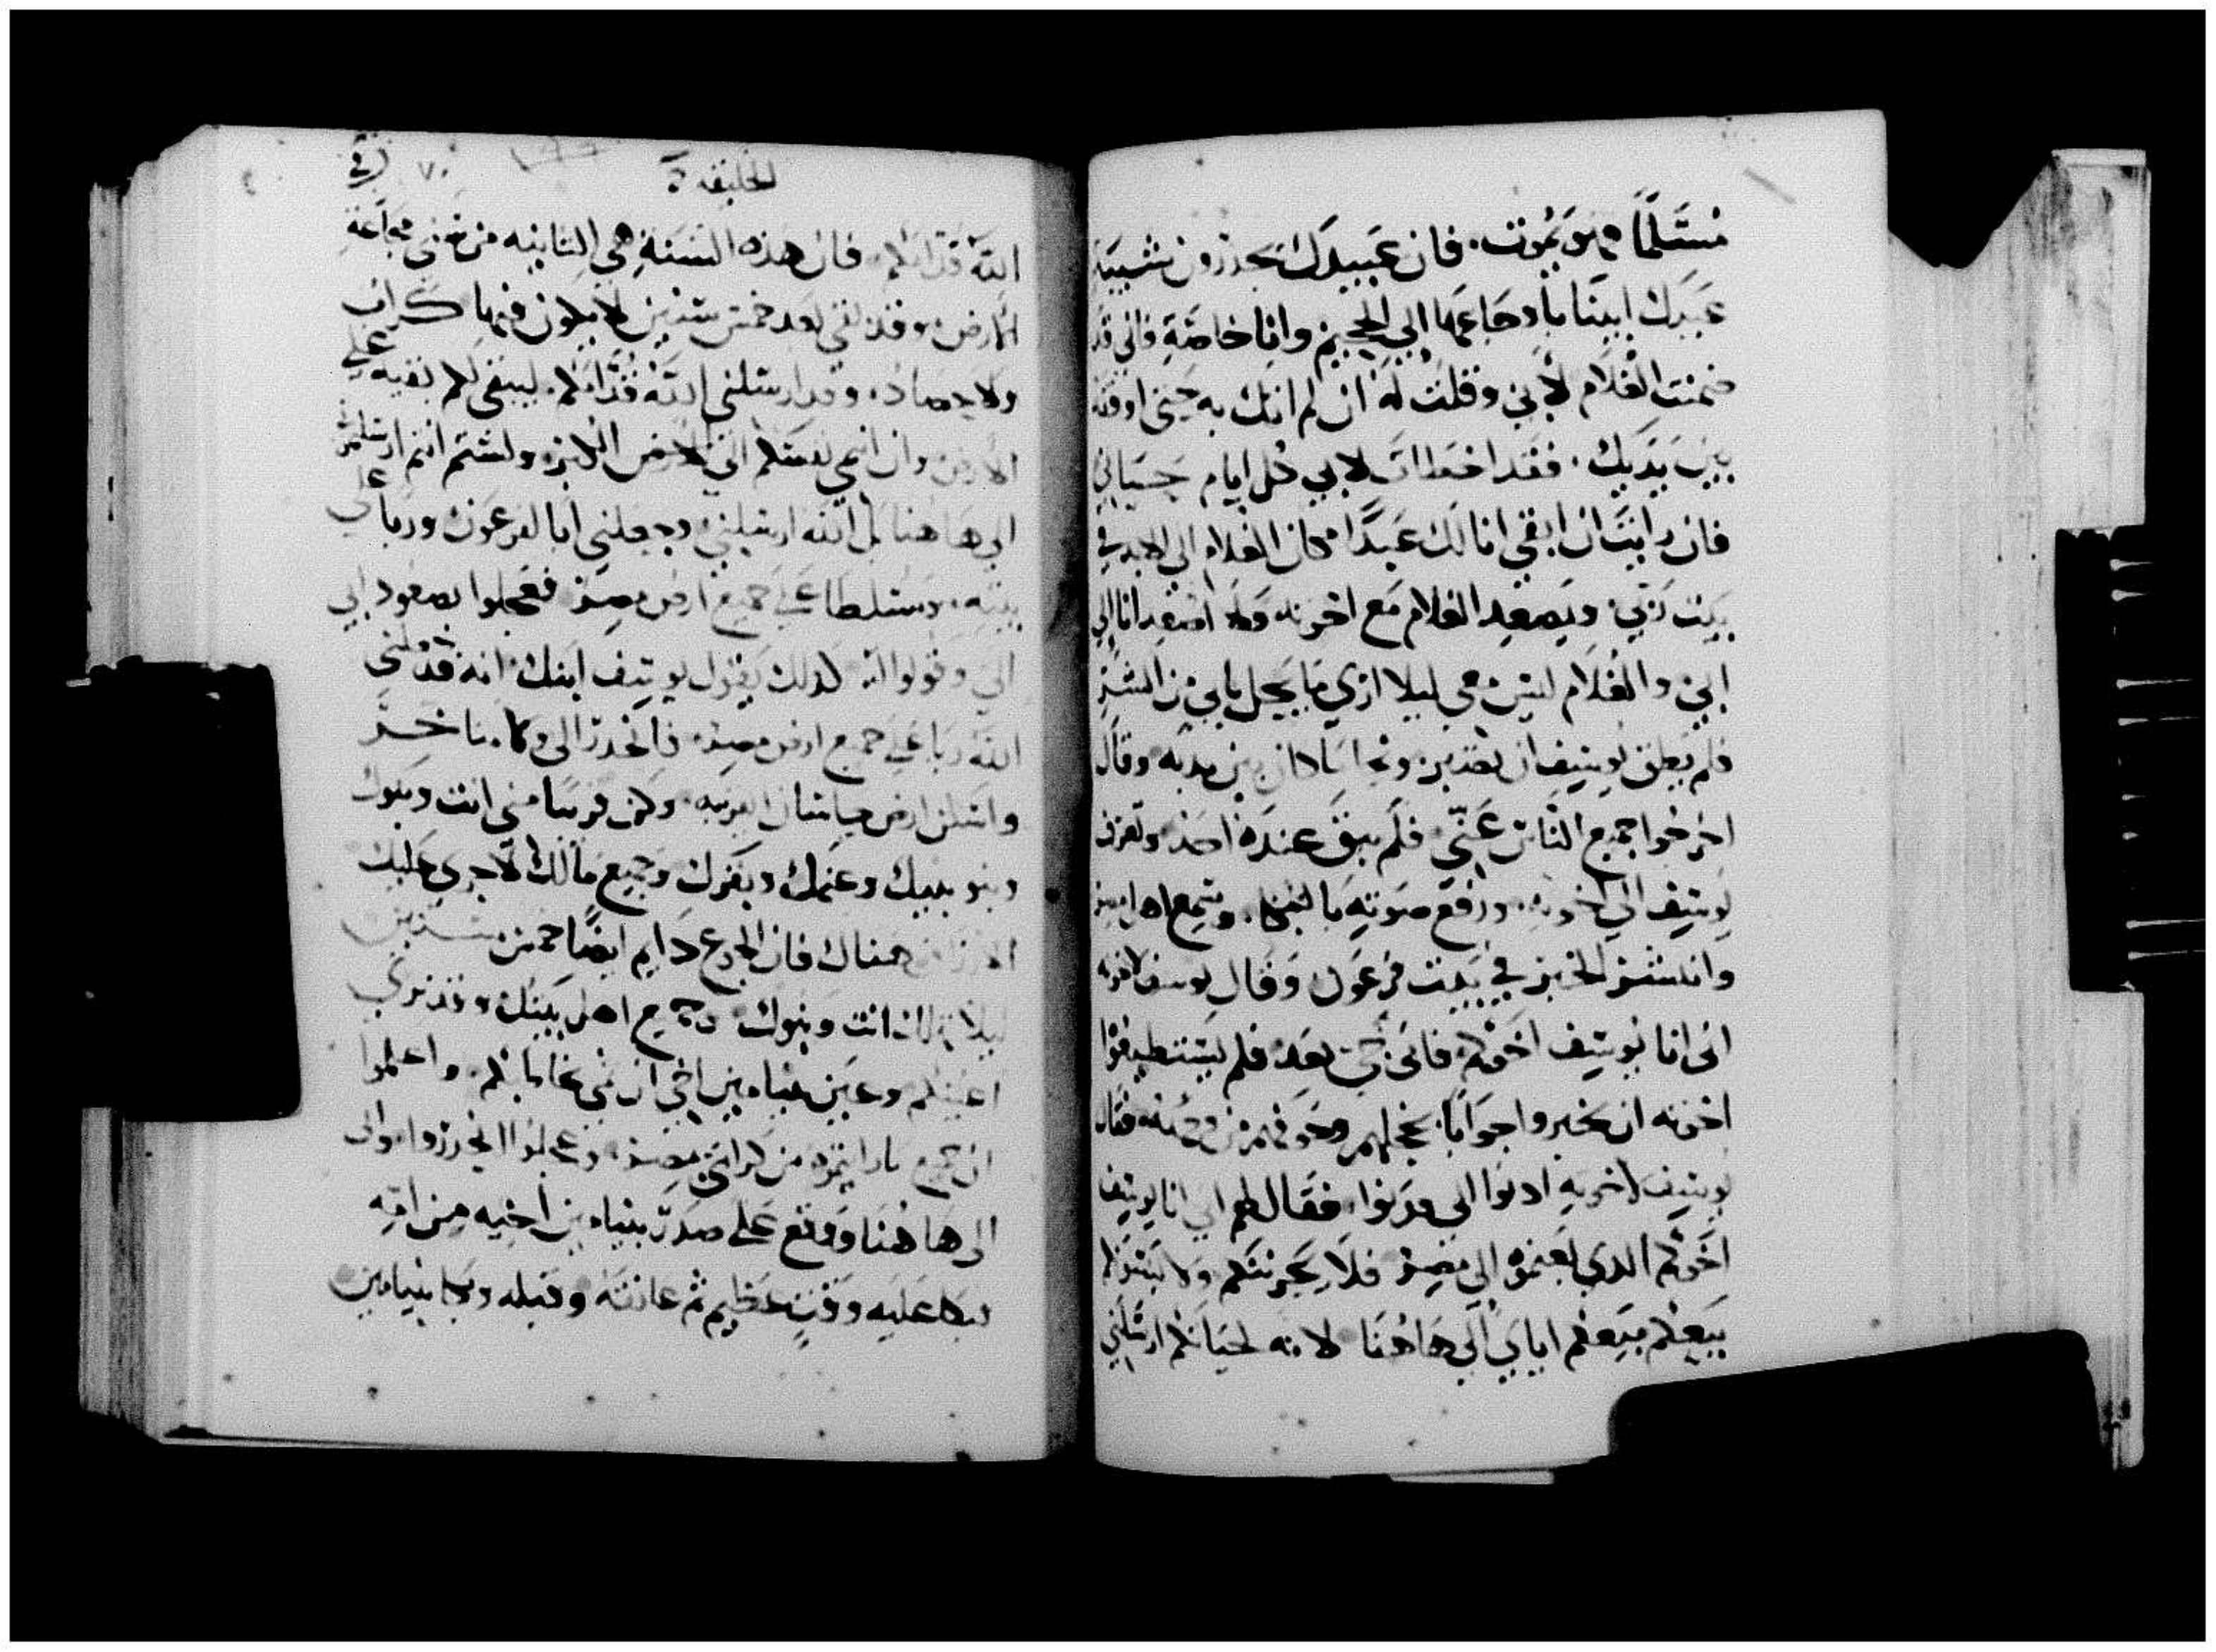 مستلمًا فهو يموت. فان عبيدك يحدرون شيبة
عبدك ابينا باوجاعها الي الجحيم وانا خاصة فاني قد
ضمنت الغلام لابي وقلت له ان لم اتك به حتى اوقفه
بين يديك. فقد اخطات لابي كل ايام حياتي
فان رايت ان ابقي انا لك عبدًا مكان الغلام الي الابد في
بيت ربي. ويصعد الغلام مع اخوته ولا اصعد انا الي
ابي والغلام ليس معي ليلا اري ما يحل بابي من الشر
فلم يطق يوسف ان يصبر وقال
اخرجوا جميع الناس عني فلم يبق عنده احد وتعرف
يوسف الي اخوته. ورفع صوته بالبكا. وسمع اهل مصر
وانتشر الخبر في بيت فرعون وقال يوسف لاخوته
اني انا يوسف اخوكم فابي حي بعد فلم يستطيعوا
اخوته ان يخبروا جوابا بخجلهم وخوفهم من وجهه فقال
يوسف لاخوته ادنوا الي فدنوا. فقال لهم اني انا يوسف
اخوكم الدي بعتموه الي مصر فلا يحزنكم ولا يسوكم
بيعكم اياي الي هاهنا لانه لحياتكم ارسلني
الخليقه
٧٠
الله قدامكم. فان هذه السنة هي التانيه من مجاعة
الارض وقد بقي بعد خمس سنين لا يكون فيها كراب
ولا حصاد. وقد ارسلني الله قدامكم. ليبقي لكم بقيه علي
الارض وان الارض الكبيره ولستم انتم ارسلتموني
الي هاهنا بل الله ارسلني وجعلني ابا لفرعون وربا علي
بيته. ومسلطا علي جميع ارض مصر فعجلوا بصعود الي
ابي وقولوا له كدلك يقول يوسف ابنك انه قد جعلني
الله ربا علي جميع ارض مصر. فانحدر الي ولا تتاخر
واسكن ارض جاسان العربيه. وكن قريبا مني انت وبنوك
وبنو بنيك وغنمك وبقرك وجميع مالك لاجري عليك
الارزاق هناك فان الجوع دايم ايضًا خمس سنين
ليلا تهلك انت وبنوك وجميع اهل بيتك وقد تري
اعينكم وعين بنيامين اخي ان فمي يخاطبكم. واعلموا
ان جميع ما رايتموه من كرامتي بمصر. وعجلوا انحدروا بوالدي
الي هاهنا ووقع علي صدر بنيامين اخيه من امه
وبكا عليه وقت عظيم ثم عانقه وقبله وبكا بنيامين